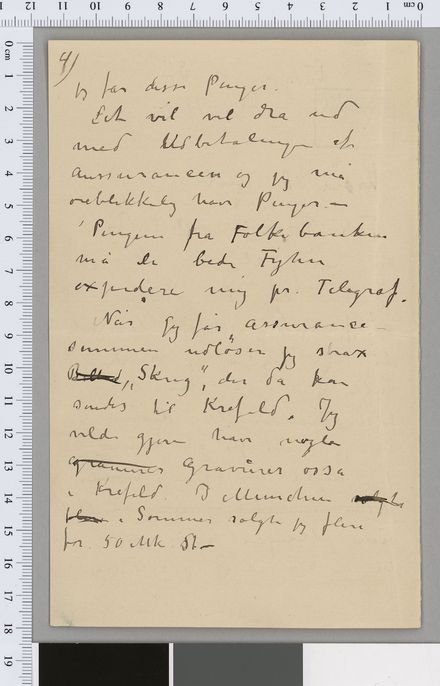 4)
jeg får disse Penger.
Det vil vel dra ud
med Udbetalingen af
assurancen og jeg må
øieblikkelig have Penger.—
Pengene fra Folkebanken
må De bede Fyhn
expedere mig pr. Telegraf.
Når jeg får assurance-
summen udløser jeg strax
„Skrig", der da kan
sendes til Krefeld. Jeg
vilde gjerne have nogle
Gravurer også
i Krefeld. I München
i Sommer solgte jeg flere
for 50 Mk St—